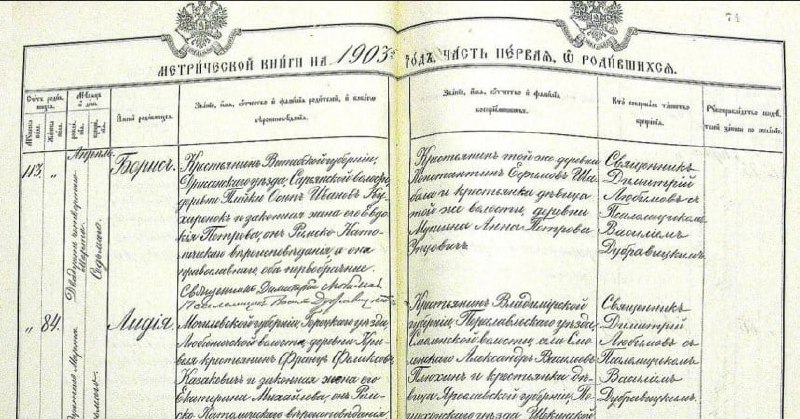 74
МЕТРИЧЕСКОЙ КНИГИ НА 1903й ГОДЪ, ЧАСТЬ ПЕРВАЯ, Ѿ РОДИВШИХСЯ.
Счетъ родившихся.
Мужеска пола.
Женска пола.
Мѣсяцъ и день.
рожденія.
крещенія.
Имена родившихся.
Званіе, имя, отчество и фамилія родителей, и какого
вѣроисповѣданія.
Званіе, имя, отчество и фамилія
воспріемниковъ.
Кто совершалъ таинство
крещенія.
Рукоприкладство свидѣтелей записи по желанію.
Апрѣль
113.
"
Двадцать четвертаго
Марта
Седьмого
Борисъ.
Крестьянинъ Витебской губерніи,
уѣзда, Сарьянской волости
деревни Плейки Осипъ Ивановъ Ку-
харонокъ и законная жена его Евдо-
кія Петрова, онъ Римско-Като-
лическаго вѣроисповѣданія, а она
православнаго, оба первобрачные.
Священникъ Димитрій Любимовъ
Крестьянинъ той же деревни
Константинъ Ефимовъ Ша-
бала и крестьянка дѣвица
той же волости, деревни
Анна Петрова
Священникъ
Димитрій
Любимовъ съ
Псаломщикомъ
Василіемъ
Дубравицкимъ.
"
84.
Марта
Лидія.
Могилевской губерніи Горецкаго уѣзда,
волости, деревни Кри-
вля крестьянинъ Францъ Феликсовъ
Казакевичъ и законная жена его
Екатерина Михайлова, онъ Рим-
ско-Католическаго вѣроисповѣданія
Крестьянинъ Владимірской
губерніи, Переславльскаго уѣзда,
волости, села Смо-
ленскаго Александръ Васильевъ
Плюхинъ и крестьянка дѣ-
вица Ярославской губерніи, По-
шехонскаго уѣзда
Священникъ
Димитрій
Любимовъ съ
Псаломщикомъ
Василіемъ
Дубравицкимъ.